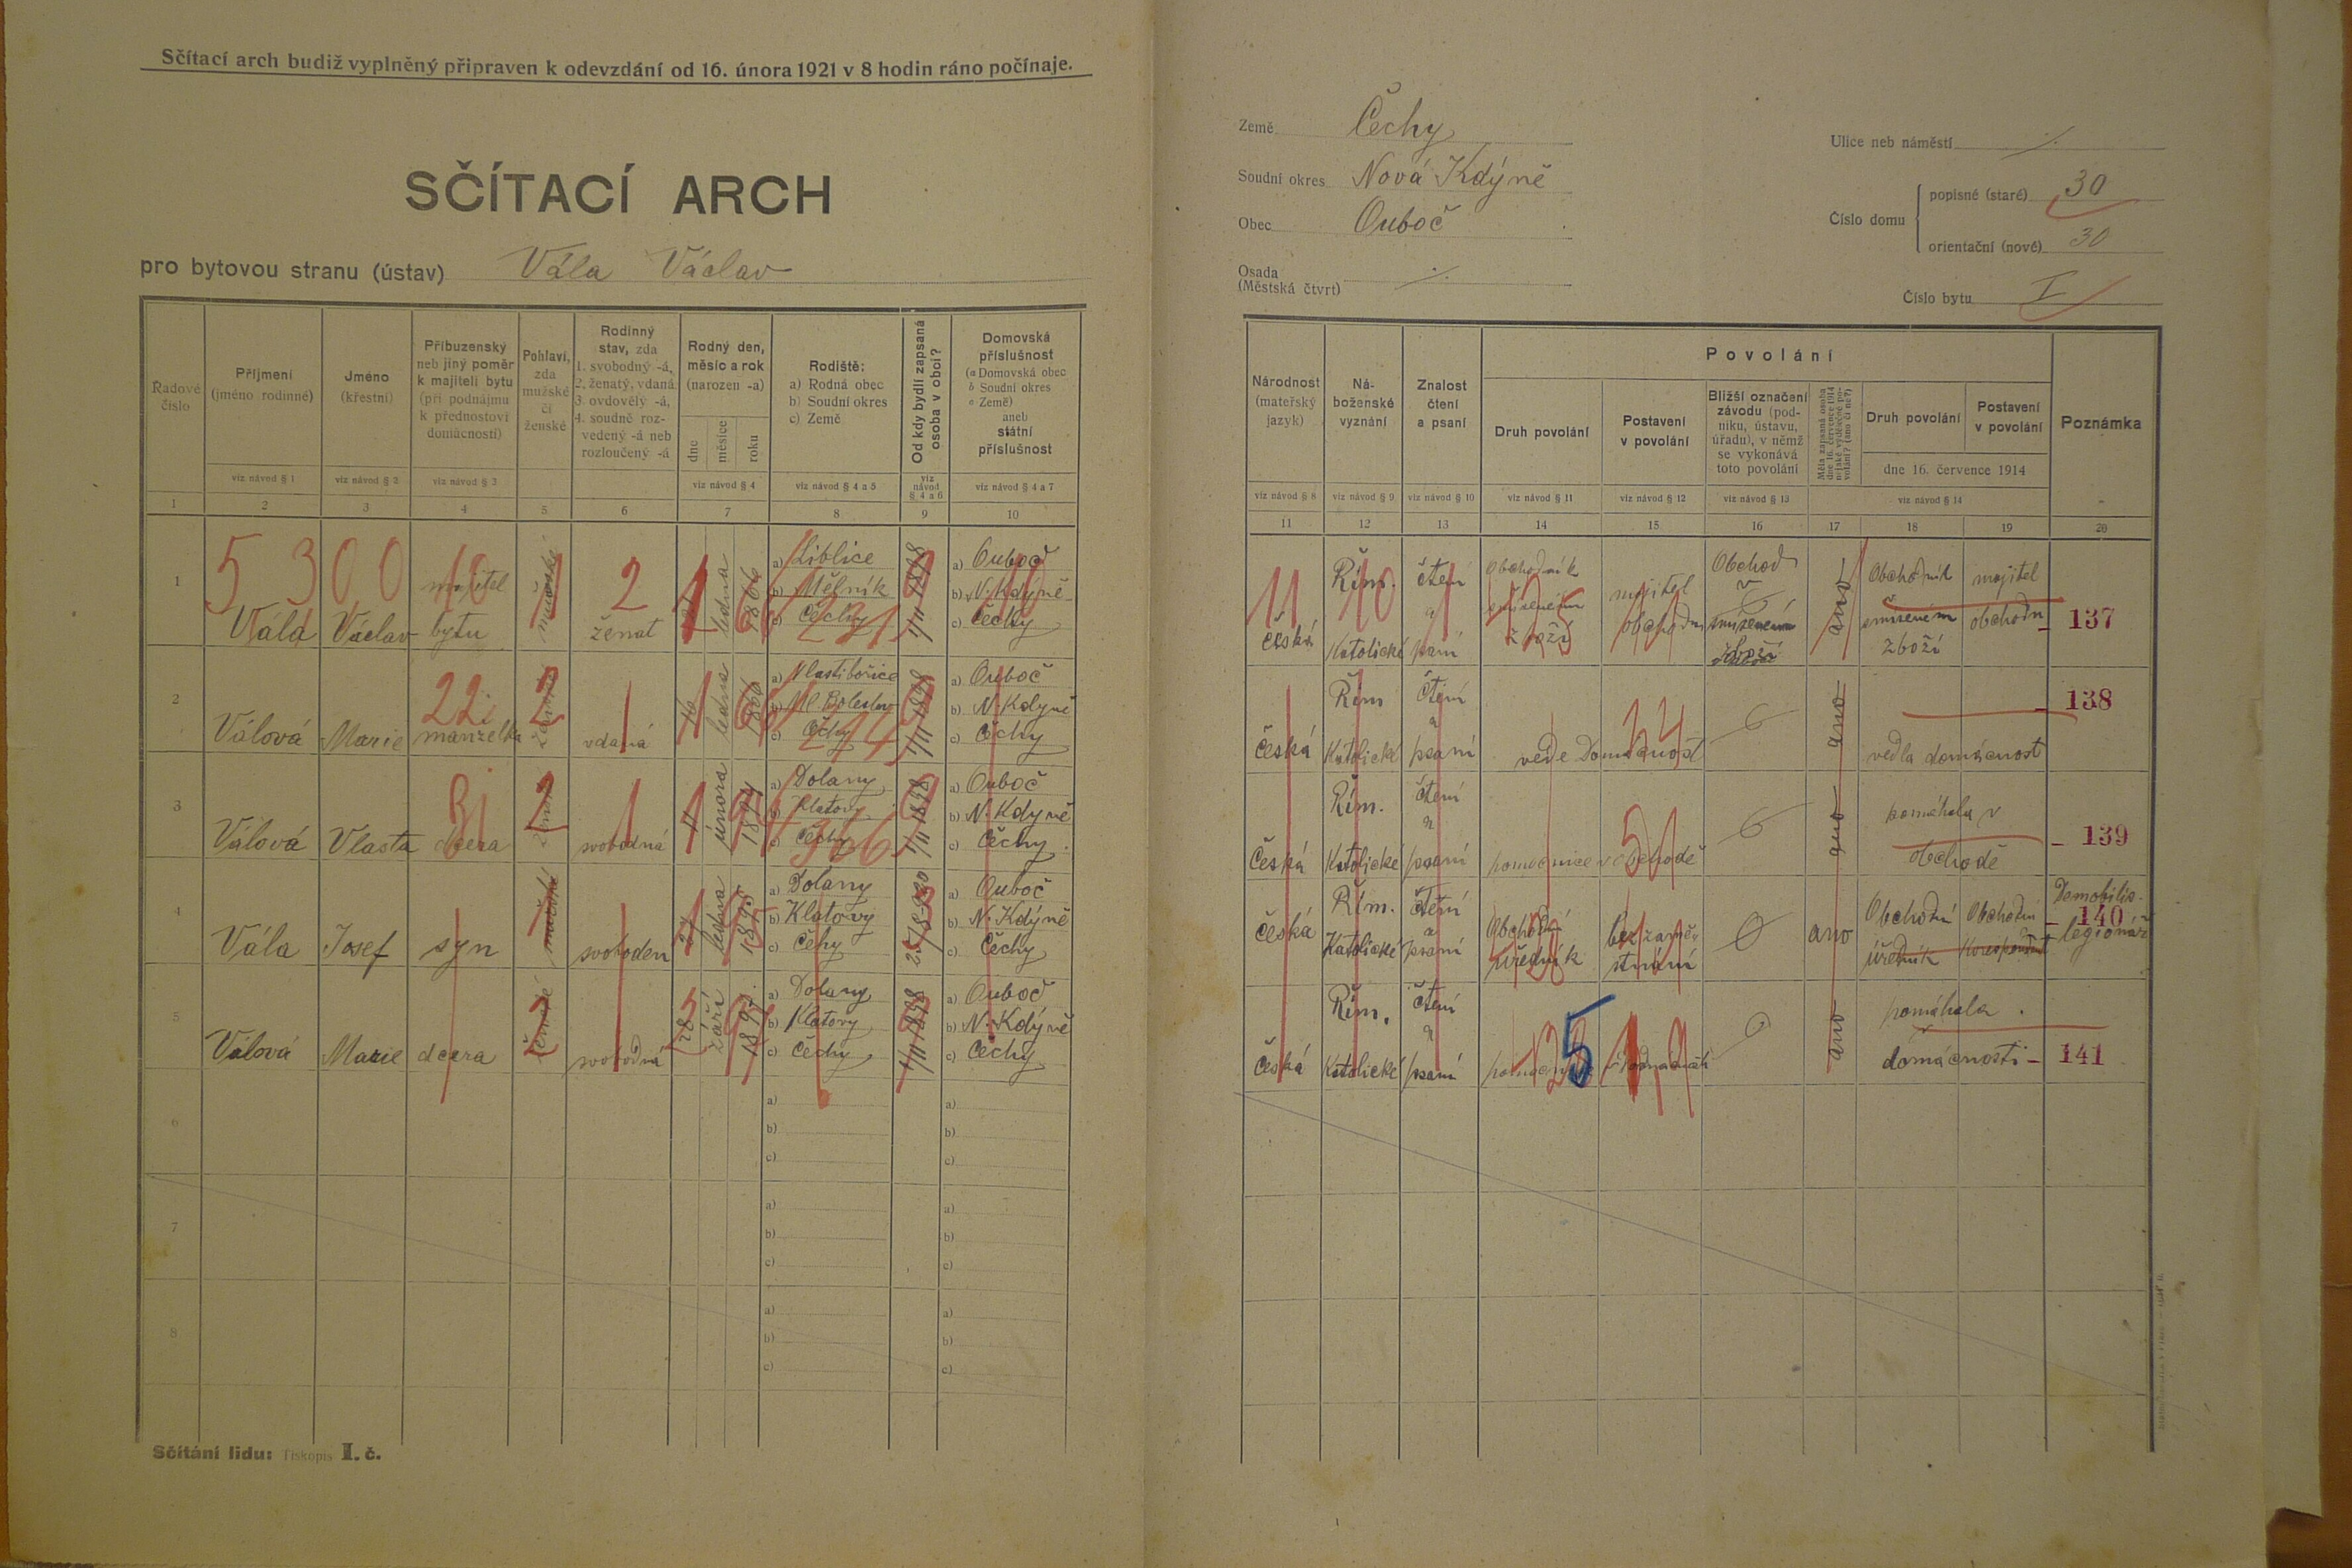 Sčítací arch budiž vyplněný připraven k odevzdání od 16. února 1921 v 8 hodin ráno počínaje.
SČÍTACÍ ARCH
pro bytovou stranu (ústav) Vála Václav
Řadové číslo
Příjmení (jméno rodinné)
Jméno (křestní)
Příbuzenský neb jiný poměr k majiteli bytu (při podnájmu k přednostovi domácnosti)
Pohlaví, zda mužské či ženské
Rodinný stav, zda 1. svobodný -á, 2. ženatý, vdaná 3. ovdovělý -á, 4. soudně rozvedený -á neb rozloučený -á
Rodný den, měsíc a rok (narozen -a)
dne měsíce roku
Rodiště: a) Rodná obec b) Soudní okres c) Země
Od kdy bydlí zapsaná osoba v obci?
Domovská příslušnost (a Domovská obec b Soudní okres c Země) aneb státní příslušnost
viz návod § 1 viz návod § 2 viz návod § 3 viz návod § 4 viz návod § 4 a 5 viz návod § 4 a 6 viz návod § 4 a 7
1 2 3 4 5 6 7 8 9 10
5 3 0 0 10
1 Vála Václav majitel bytu mužské 2 ženat ledna 1866 a) Liblice b) Mělník c) Čechy 1/11 1898 a) Ouboč b) N. Kdyně c) Čechy
2 Válová Marie manželka 22 vdaná 16 ledna 1866 a) Vlastibořice b) Ml. Boleslav c) Čechy 1/11 1898 a) Ouboč b) N. Kdyně c) Čechy
3 Válová Vlasta dcera svobodná února 1894 a) Dolany b) Klatovy c) Čechy 1/11 1898 a) Ouboč b) N. Kdyně c) Čechy
4 Vála Josef syn mužské svoboden ledna 1895 a) Dolany b) Klatovy c) Čechy a) Ouboč b) N. Kdýně c) Čechy
5 Válová Marie dcera ženské svobodná 28 září a) Dolany b) Klatovy c) Čechy 1/11 1898 a) Ouboč b) N. Kdýně c) Čechy
6 a) b) c) a) b) c)
7 a) b) c) a) b) c)
8 a) b) c) a) b) c)
Sčítání lidu: Tiskopis I. č.
Země Čechy
Soudní okres Nová Kdýně
Obec Ouboč
Osada (Městská čtvrť) ./.
Ulice neb náměstí ./.
Číslo domu
popisné (staré) 30
orientační (nové) 30
Číslo bytu I
Národnost (mateřský jazyk)
Náboženské vyznání
Znalost čtení a psaní
Povolání
Druh povolání
Postavení v povolání
Bližší označení závodu (podniku, ústavu, úřadu), v němž se vykonává toto povolání
Měla zapsaná osoba dne 16. července 1914 nějaké výdělečné povolání? (ano či ne?)
Druh povolání
Postavení v povolání
dne 16. července 1914
Poznámka
viz návod § 8 viz návod § 9 viz návod § 10 viz návod § 11 viz návod § 12 viz návod § 13 viz návod § 14
11 12 13 14 15 16 17 18 19 20
česká Řím. Katolické čtení a psaní Obchodník smíseném zboží majitel obchodu Obchod smíseném zboží ano Obchodník smíseném zboží majitel obchodu 137
česká Řím Katolické čtení a psaní vede Domácnost 34 ano vedla domácnost 138
česká Řím. Katolické čtení a psaní pomocnice v obchodě 51 ano pomáhala v obchodě 139
česká Řím. Katolické čtení a psaní Obchodní úředník bez zaměstnání 0 ano Obchodní úředník Obchodní korespondent Demobilis. 140 legionář
česká Řím. Katolické čtení a psaní 5 0 ano pomáhala v domácnosti 141